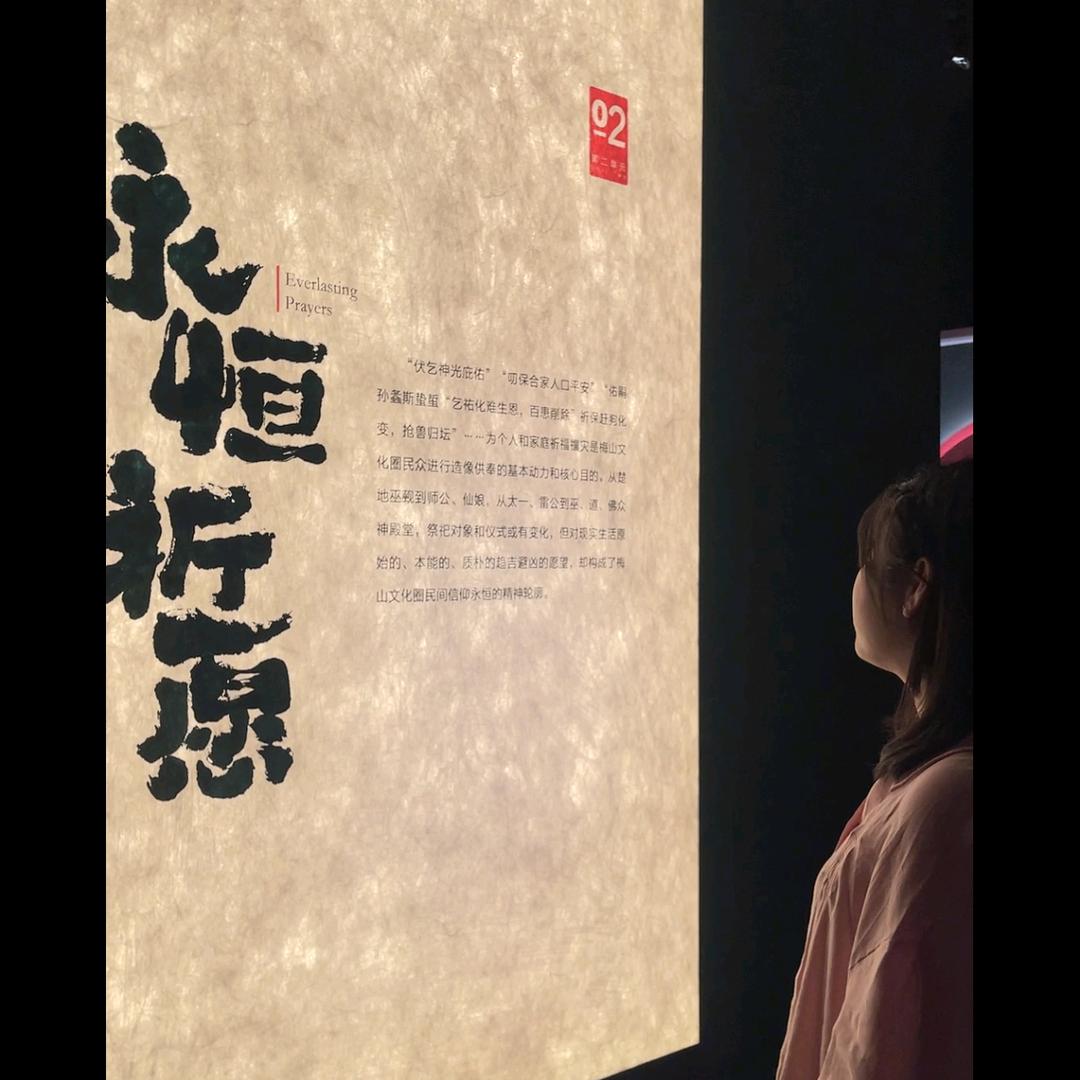 02
第二单元
永恒祈愿
Everlasting
Prayers
“伏乞神光庇佑” “叨保合家人口平安” “佑嗣
孙螽斯蛰蛰 “乞祐化难生恩，百患削除” 祈保赶狗化
变，抢兽归坛” ……为个人和家庭祈福禳灾是梅山文
化圈民众进行造像供奉的基本动力和核心目的。从楚
地巫觋到师公、仙娘，从太一、雷公到巫、道、佛众
神殿堂，祭祀对象和仪式或有变化，但对现实生活原
始的、本能的、质朴的趋吉避凶的愿望，却构成了梅
山文化圈民间信仰永恒的精神轮廓。